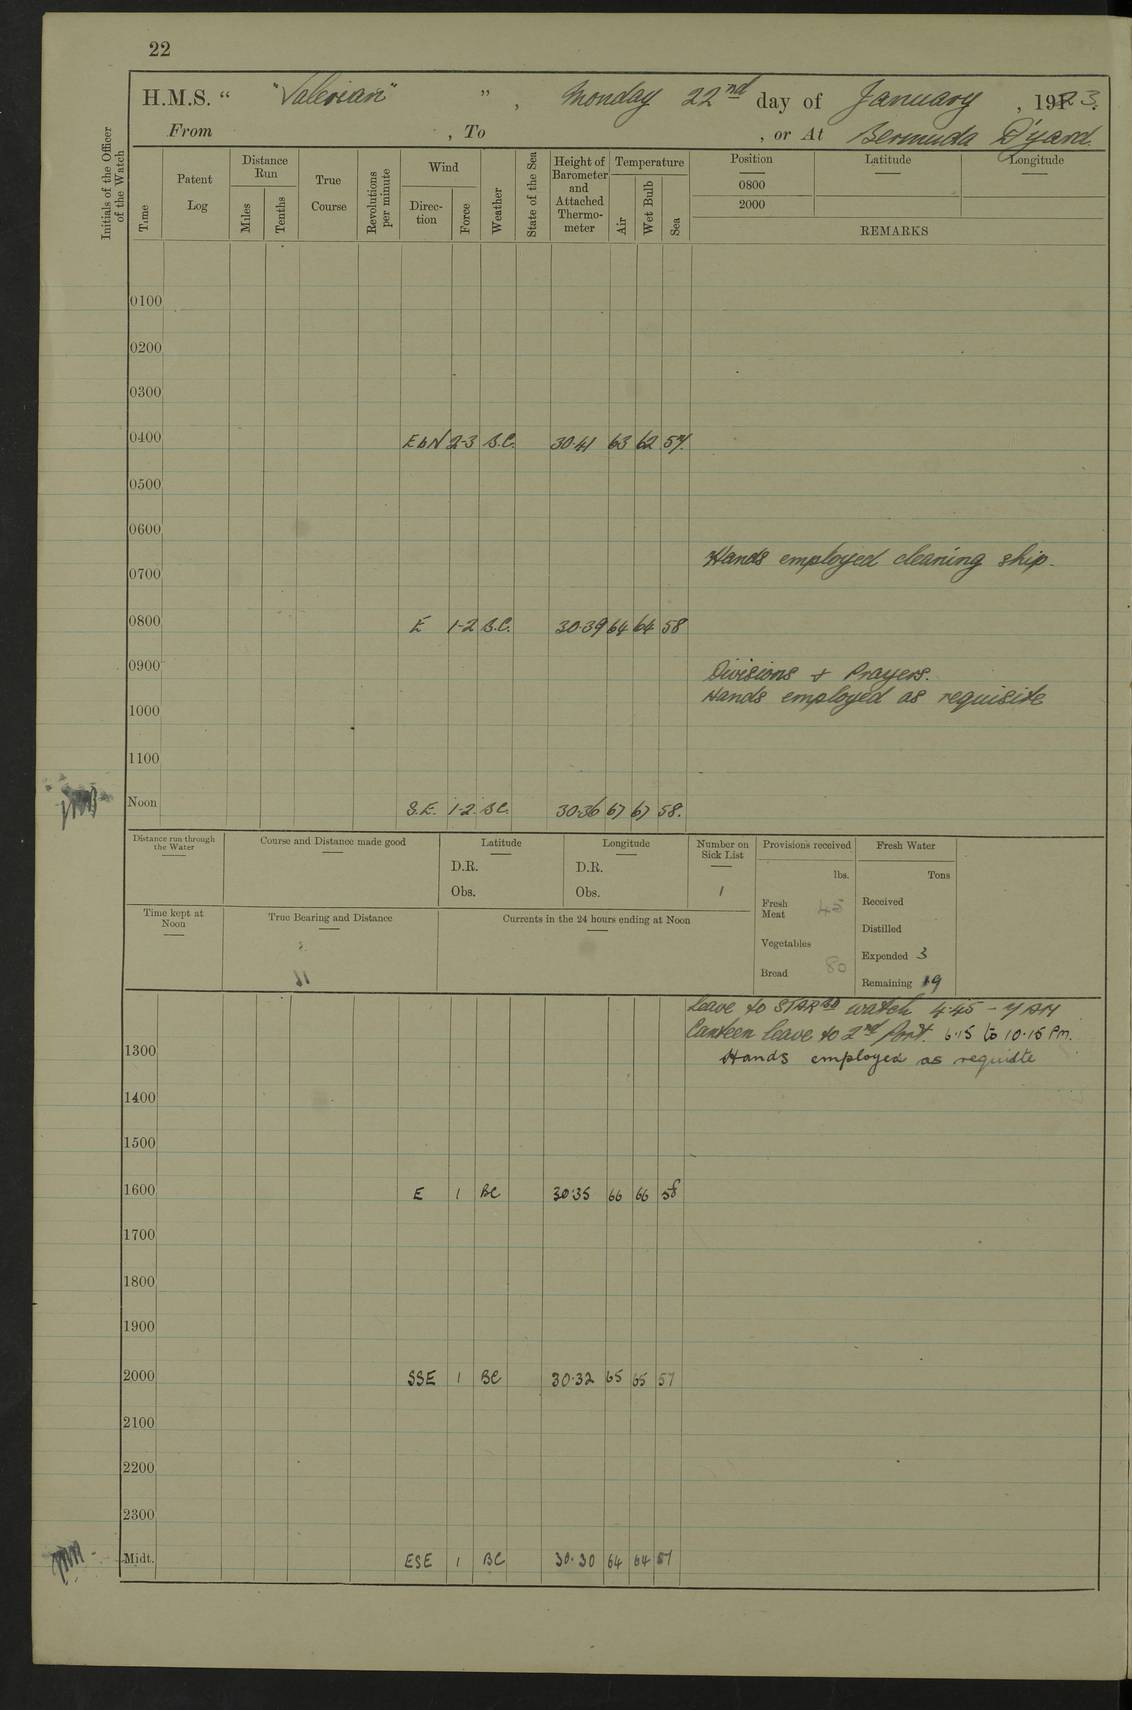 22
H.M.S. “ "Valerian" ” , Monday 22nd day of January , 1923.
From , To , or At Bermuda D'yard.
Initials of the Officer of the Watch
Time
Patent Log
Distance Run
Miles
Tenths
True Course
Revolutions per minute
Wind
Direc-tion
Force
Weather
State of the Sea
Height of Barometer and Attached Thermo-meter
Temperature
Air
Wet Bulb
Sea
Position Latitude Longitude
0800
2000
REMARKS
0100
0200
0300
0400 E b N 2-3 B.C. 30.41 63 62 57.
0500
0600
Hands employed cleaning ship.
0700
0800 E 1-2 B.C. 30.39 64 64 58
0900
Divisions + Prayers.
Hands employed as requisite
1000
1100
Noon S.E. 1-2 B.C. 30.36 67 67 58.
Distance run through the Water
Course and Distance made good
Latitude
D.R.
Obs.
Longitude
D.R.
Obs.
Number on Sick List
1
Provisions received
lbs.
Fresh Meat 45
Vegetables
Bread 80
Fresh Water
Tons
Received
Distilled
Expended 3
Remaining 19
Time kept at Noon
True Bearing and Distance
Currents in the 24 hours ending at Noon
Leave to STARBD watch 4.45 - 7 AM
Canteen leave to 2nd Part. 6.15 to 10.15 Pm.
Hands employed as requisite
1300
1400
1500
1600 E 1 BC 30.35 66 66 58
1700
1800
1900
2000 SSE 1 BC 30.32 65 65 57
2100
2200
2300
Midt. ESE 1 BC 30.30 64 64 57